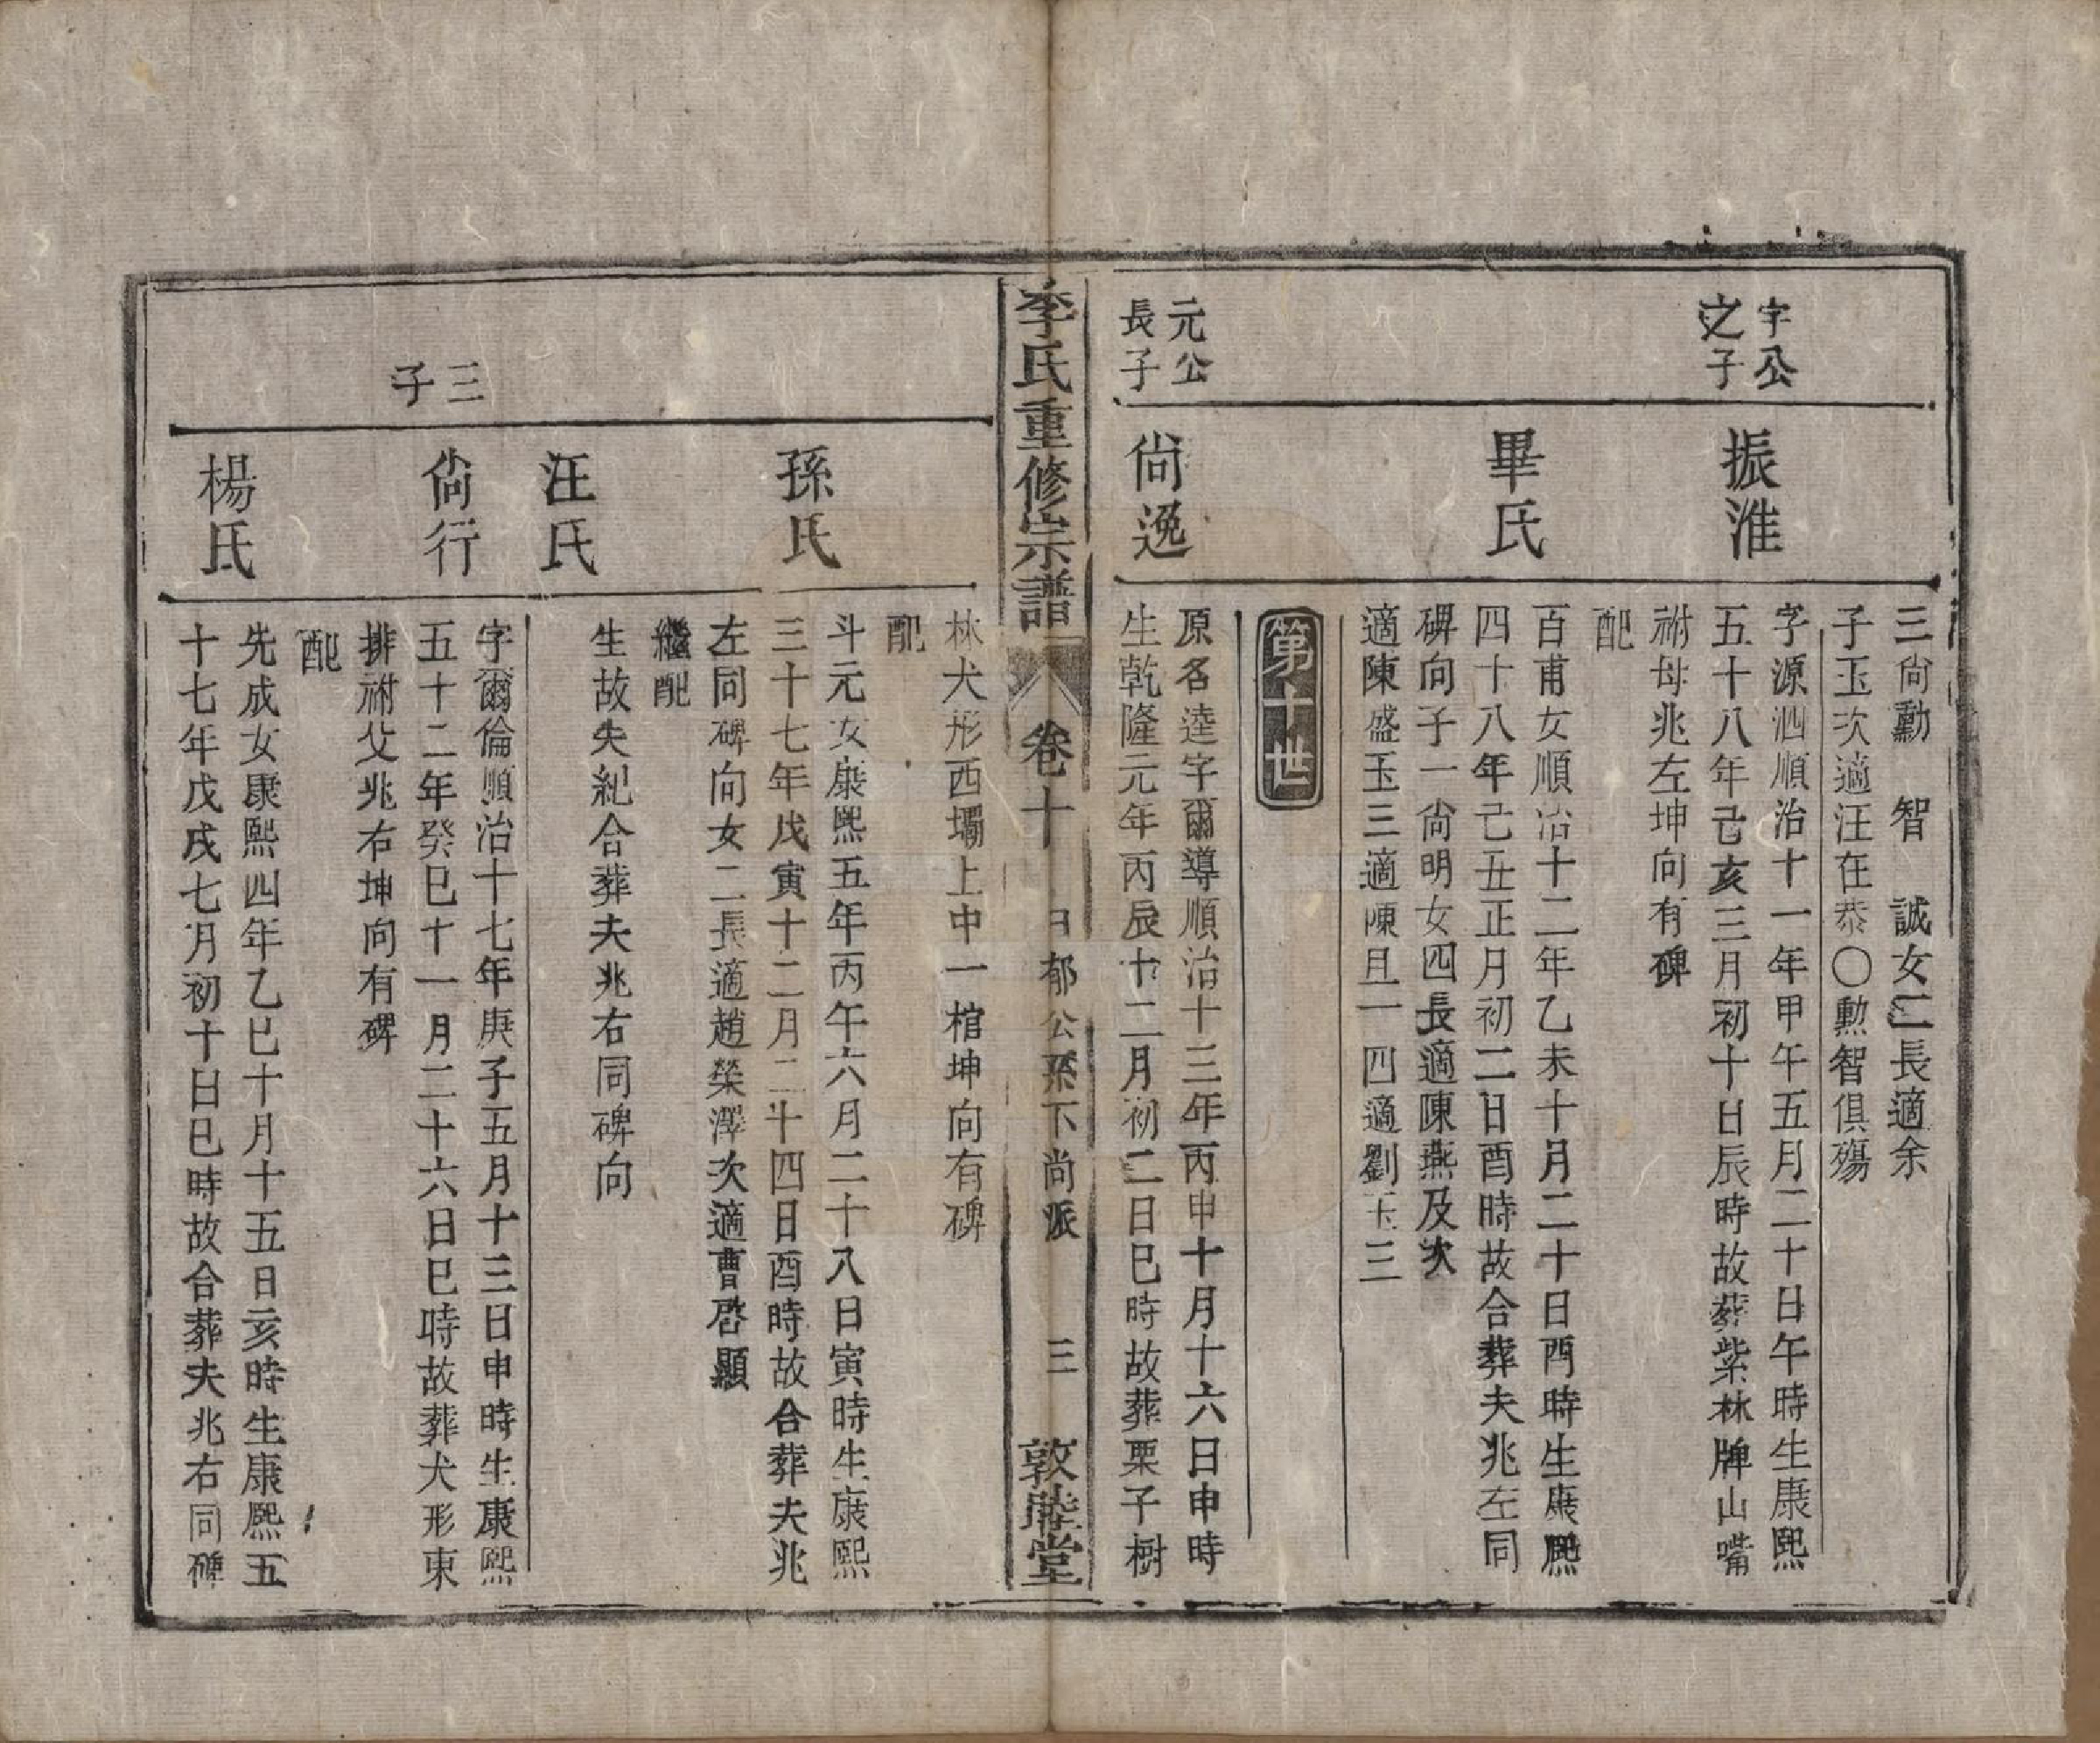 三尙勳　智　誠女二長適余
子玉次適汪在恭〇勳智俱殤
字公
之子
振淮
字源泗順治十一年甲午五月二十日午時生康熙
五十八年己亥三月初十日辰時故葬紫林牌山嘴
祔母兆左坤向有碑
畢氏
配
百甫女順治十二年乙未十月二十日酉時生康熙
四十八年己丑正月初二日酉時故合葬夫兆左同
碑向子一尙明女四長適陳燕及次
適陳盛玉三適陳且一四適劉玉三
第十世
元公
長子
尙逸
原名逵字爾導順治十三年丙申十月十六日申時
生乾隆元年丙辰十二月初二日巳時故葬栗子樹
李氏重修宗譜　卷十　日郁公系下尚派　三　敦睦堂
林犬形西壩上中一棺坤向有碑
孫氏
配
斗元女康熙五年丙午六月二十八日寅時生康熙
三十七年戊寅十二月二十四日酉時故合葬夫兆
左同碑向女二長適趙榮澤次適曹啓顯
汪氏
繼配
生故失紀合葬夫兆右同碑向
三
子
尙行
字爾倫順治十七年庚子五月十三日申時生康熙
五十二年癸巳十一月二十六日巳時故葬犬形東
排祔父兆右坤向有碑
楊氏
配
先成女康熙四年乙巳十月十五日亥時生康熙五
十七年戊戌七月初十日巳時故合葬夫兆右同碑